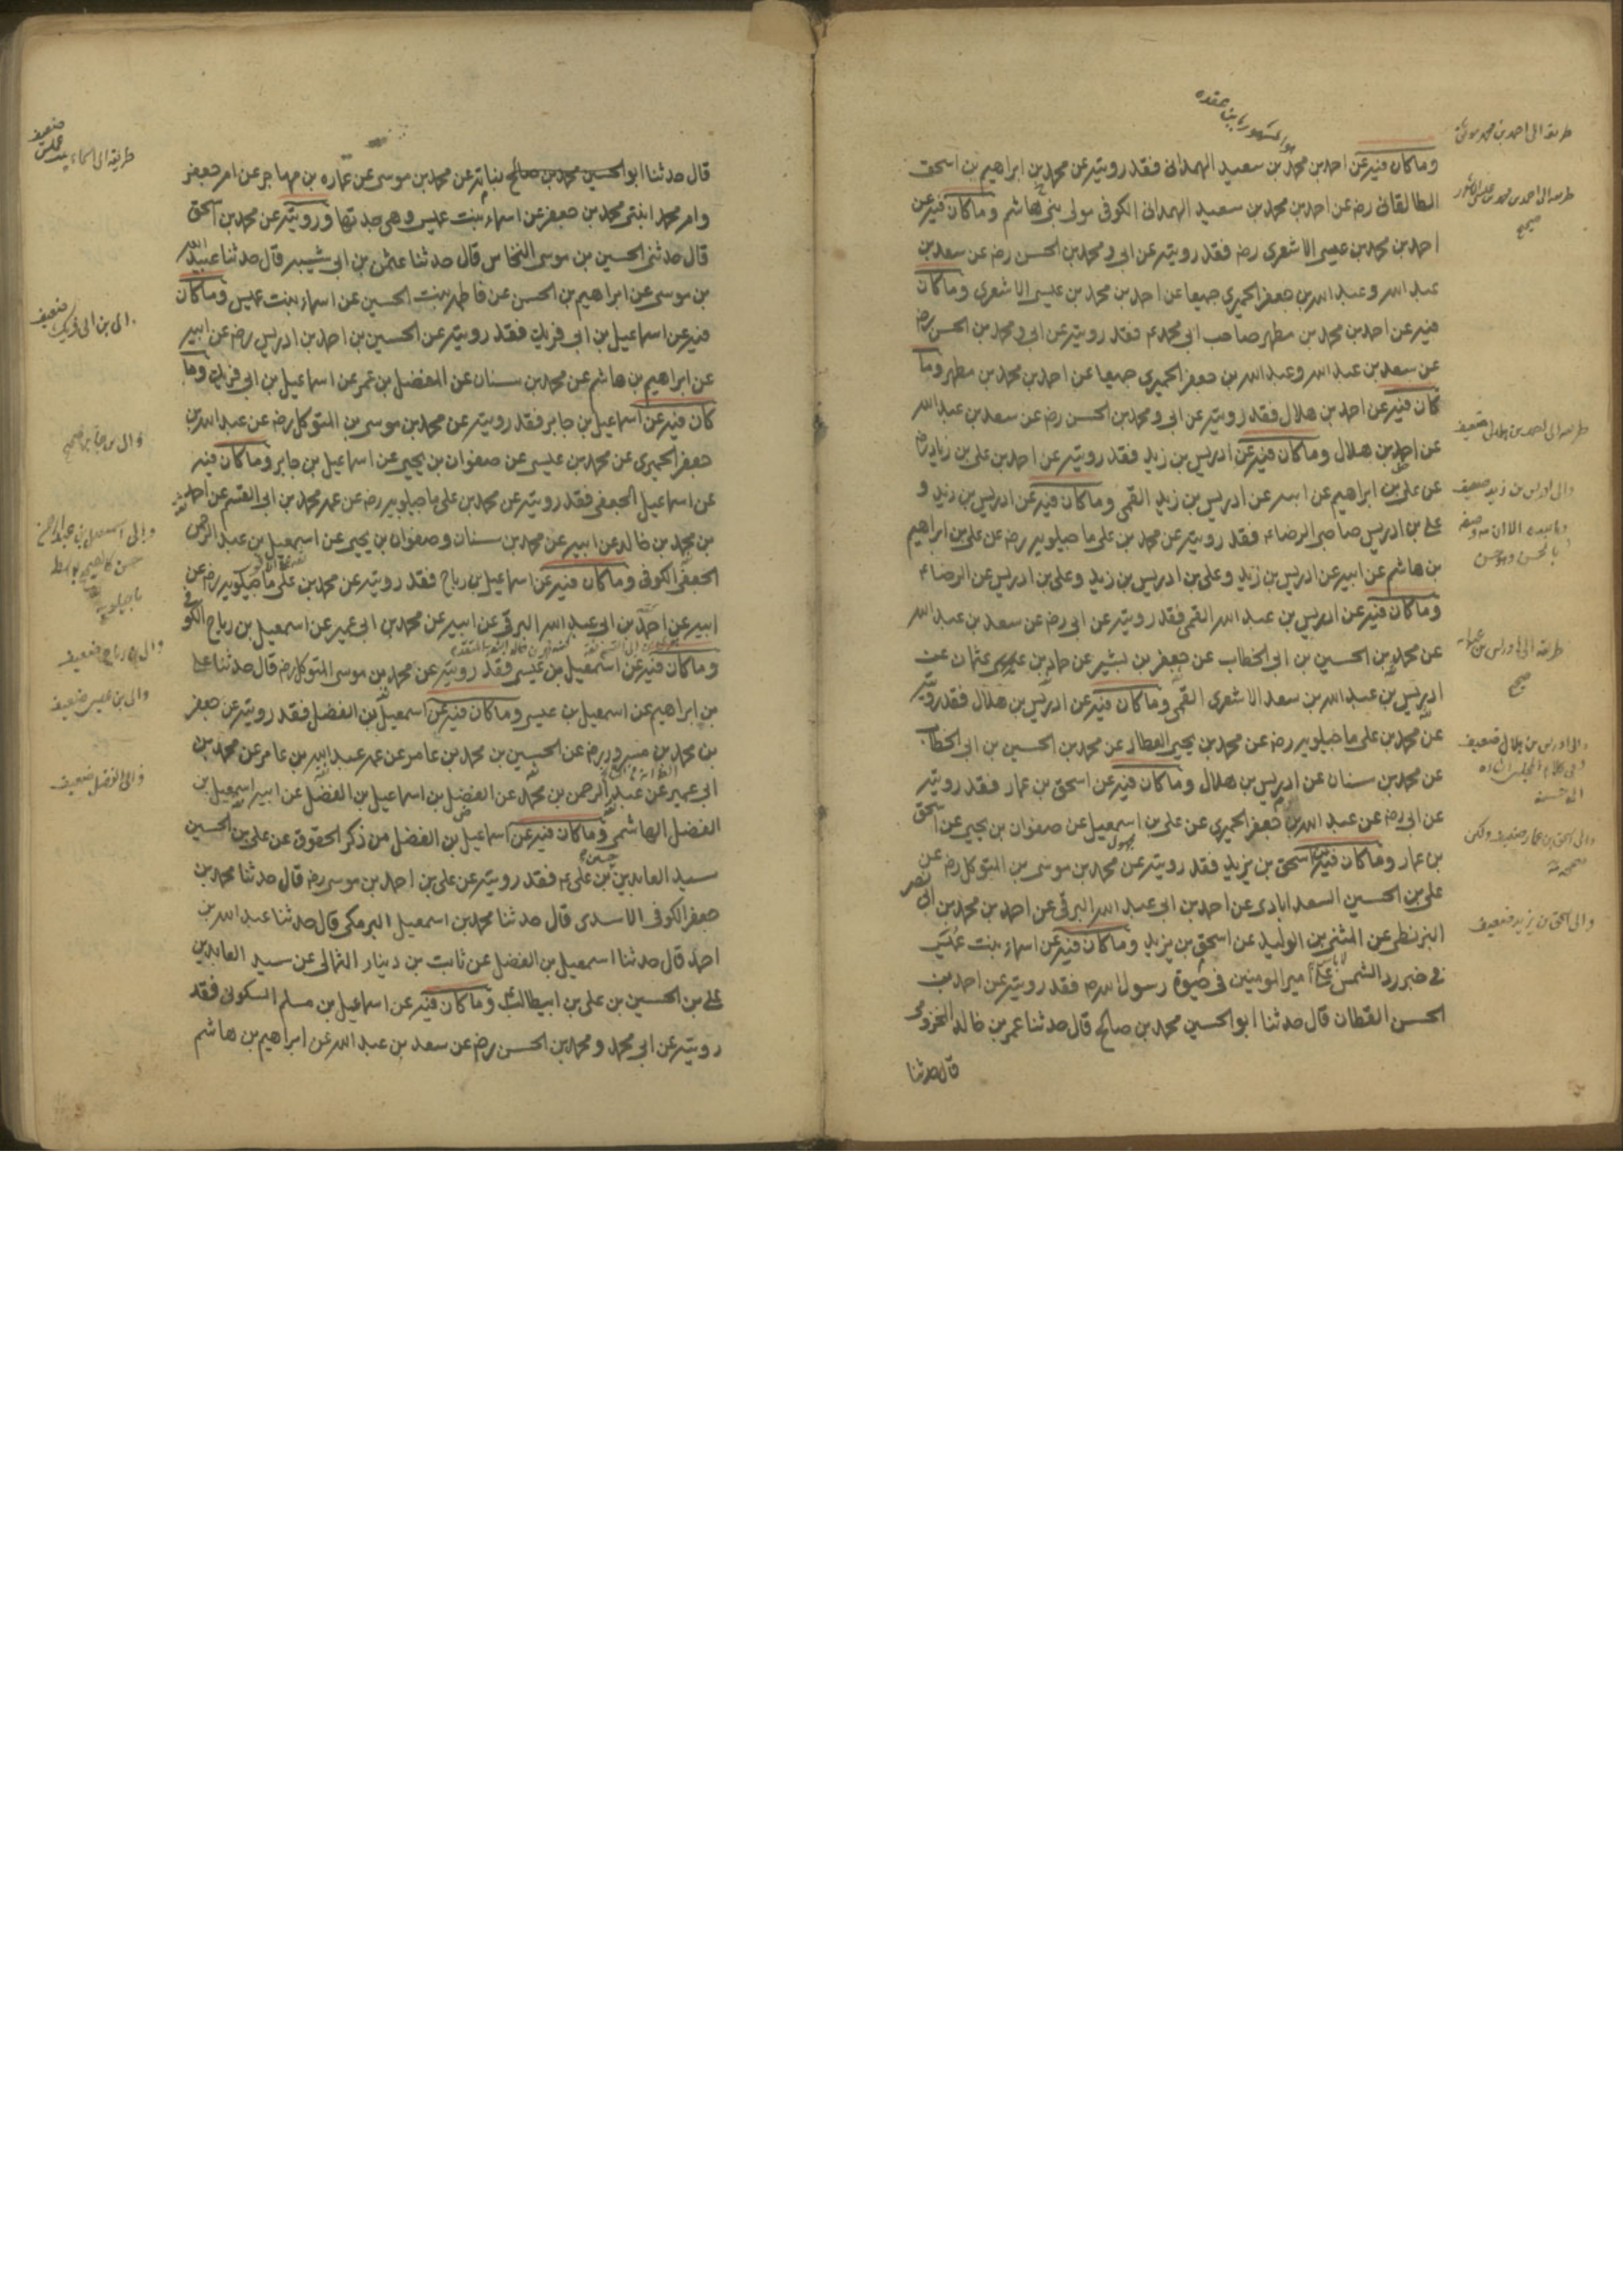 وماكان فيه عن احمد بن محمد بن سعيد الهمدانى فقد رويته عن محمد بن ابراهيم بن اسحق
الطالقانى رضه عن احمد بن محمد بن سعيد الهمدانى الكوفى مولى بنى هاشم وماكان فيه عن
احمد بن محمد بن عيسى الاشعرى رضه فقد رويته عن ابى ومحمد بن الحسن رضه عن سعد بن
عبد الله وعبد الله بن جعفر الحميرى جميعا عن احمد بن محمد بن عيسى الاشعرى وماكان
فيه عن احمد بن محمد بن مطهر صاحب ابى محمد ع فقد رويته عن ابى ومحمد بن الحسن رضه
عن سعد بن عبد الله وعبد الله بن جعفر الحميرى جميعا عن احمد بن محمد بن مطهر وما
كان فيه عن احمد بن هلال فقد رويته عن ابى ومحمد بن الحسن رضه عن سعد بن عبد الله
عن احمد بن هلال وماكان فيه عن ادريس بن زيد فقد رويته عن احمد بن على بن زياد رضه
عن على بن ابراهيم عن ابيه عن ادريس بن زيد القمى وماكان فيه عن ادريس بن زيد و
على بن ادريس صاحبى الرضاء فقد رويته عن محمد بن على ماجيلويه رضه عن على بن ابراهيم
بن هاشم عن ابيه عن ادريس بن زيد وعلى بن ادريس بن زيد وعلى بن ادريس عن الرضاء
وماكان فيه عن ادريس بن عبد الله القمى فقد رويته عن ابى رضه عن سعد بن عبد الله
عن محمد بن الحسين بن ابى الخطاب عن جعفر بن بشير عن حماد بن عثمان عن
ادريس بن عبد الله بن سعد الاشعرى القمى وماكان فيه عن ادريس بن هلال فقد رويته
عن محمد بن على ماجيلويه رضه عن محمد بن يحيى العطار عن محمد بن الحسين بن ابى الخطاب
عن محمد بن سنان عن ادريس بن هلال وماكان فيه عن اسحق بن عمار فقد رويته
عن ابى رضه عن عبد الله بن جعفر الحميرى عن على بن اسمعيل عن صفوان بن يحيى عن اسحق
بن عمار وماكان فيه عن اسحق بن يزيد فقد رويته عن محمد بن موسى بن المتوكل رضه عن
على بن الحسين السعدابادى عن احمد بن ابى عبد الله البرقى عن احمد بن محمد بن ابى نصر
البزنطى عن المثنى بن الوليد عن اسحق بن يزيد وماكان فيه عن اسماء بنت عميس
فى خبر رد الشمس على امير المومنين فى حيوة رسول الله ص فقد رويته عن احمد بن
الحسن القطان قال حدثنا ابو الحسين محمد بن صالح قال حدثنا عمر بن خالد المخزومى
قال حدثنا
طريقه الى احمد بن محمد موثق
صحيح
صحيح
والى اسحق بن يزيد ضعيف
قال حدثنا ابو الحسين محمد بن صالح بنباته عن محمد بن موسى عن عماره بن مهاجر عن ام جعفر
وام محمد ابنتى محمد بن جعفر عن اسماء بنت عميس وهى جدتها ورويته عن محمد بن اسحق
قال حدثنى الحسين بن موسى النخاس قال حدثنا عثمن بن ابى شيبه قال حدثنا عبيد الله
بن موسى عن ابراهيم بن الحسن عن فاطمه بنت الحسين عن اسماء بنت عميس وماكان
فيه عن اسماعيل بن ابى فديك فقد رويته عن الحسين بن احمد بن ادريس رضه عن ابيه
عن ابراهيم بن هاشم عن محمد بن سنان عن المفضل بن عمر عن اسماعيل بن ابى فديك وما
كان فيه عن اسماعيل بن جابر فقد رويته عن محمد بن موسى بن المتوكل رضه عن عبد الله بن
جعفر الحميرى عن محمد بن عيسى عن صفوان بن يحيى عن اسماعيل بن جابر وماكان فيه
عن اسماعيل الجعفى فقد رويته عن محمد بن على ماجيلويه رضه عن عمه محمد بن ابى القسم عن احمد
بن محمد بن خالد عن ابيه عن محمد بن سنان وصفوان بن يحيى عن اسمعيل بن عبد الرحمن
الجعفى الكوفى وماكان فيه عن اسماعيل بن رباح فقد رويته عن محمد بن على ماجيلويه رضه عن
ابيه عن احمد بن ابى عبد الله البرقى عن ابيه عن محمد بن ابى عمير عن اسمعيل بن رباح الكوفى
وماكان فيه عن اسمعيل بن عيسى فقد رويته عن محمد بن موسى المتوكل رضه قال حدثنا على
بن ابراهيم عن اسمعيل بن عيسى وماكان فيه عن اسمعيل بن الفضل فقد رويته عن جعفر
بن محمد بن مسرور رضه عن الحسين بن محمد بن عامر عن عمه عبد الله بن عامر عن محمد بن
ابى عمير عن عبد الرحمن بن محمد عن الفضل بن اسماعيل بن الفضل عن ابيه اسمعيل بن
الفضل الهاشمى وماكان فيه عن اسماعيل بن الفضل من ذكر الحقوق عن على بن الحسين
سيد العابدين بن على ع فقد رويته عن على بن احمد بن موسى رضه قال حدثنا محمد بن
جعفر الكوفى الاسدى قال حدثنا محمد بن اسمعيل البرمكى قال حدثنا عبد الله بن
احمد قال حدثنا اسمعيل بن الفضل عن ثابت بن دينار الثمالى عن سيد العابدين
على بن الحسين بن على بن ابيطالب وماكان فيه عن اسماعيل بن مسلم السكونى فقد
رويته عن ابى محمد ومحمد بن الحسن رضه عن سعد بن عبد الله عن ابراهيم بن هاشم
والى بن عيسى ضعيف
والى الفضل ضعيف